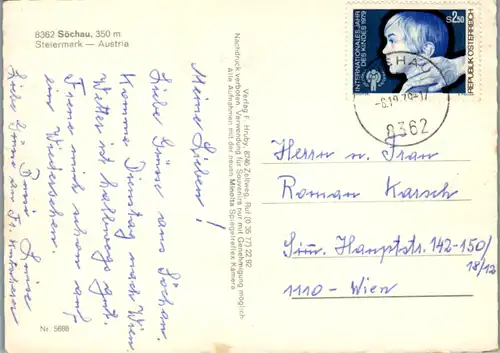 8362 Söchau, 350 m
Steiermark — Austria
Meine Lieben!
Liebe Grüße aus Söchau.
Komme Dienstag nach Wien.
Wetter ist halbwegs gut.
Freue mich schon auf
ein Wiedersehen.
Liebe Grüße an Fr.
Nr. 5668
Verlag F. Hruby, 8740 Zeltweg, Ruf (0 35 77) 22 92
Nachdruck verboten. Verwendung für Souvenirs nur mit Genehmigung möglich
Alle Aufnahmen mit der neuen Minolta Spiegelreflex Kamera
INTERNATIONALES JAHR
DES KINDES 1979
S 2.50
REPUBLIK ÖSTERREICH
8362
Herrn u. Frau
Roman Karsch
Sim. Hauptstr. 142-150/
18/12
1110 - Wien